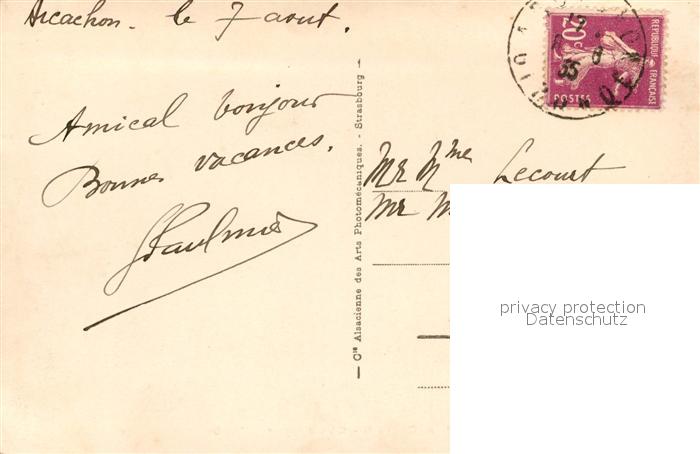 Arcachon. le 7 aout.
Amical bonjour
Bonnes vacances.
Mr Mme Lecourt
Mr M
— Cie Alsacienne des Arts Photomécaniques. - Strasbourg —
REPUBLIQUE FRANÇAISE
20 c
POSTES
35
privacy protection
Datenschutz